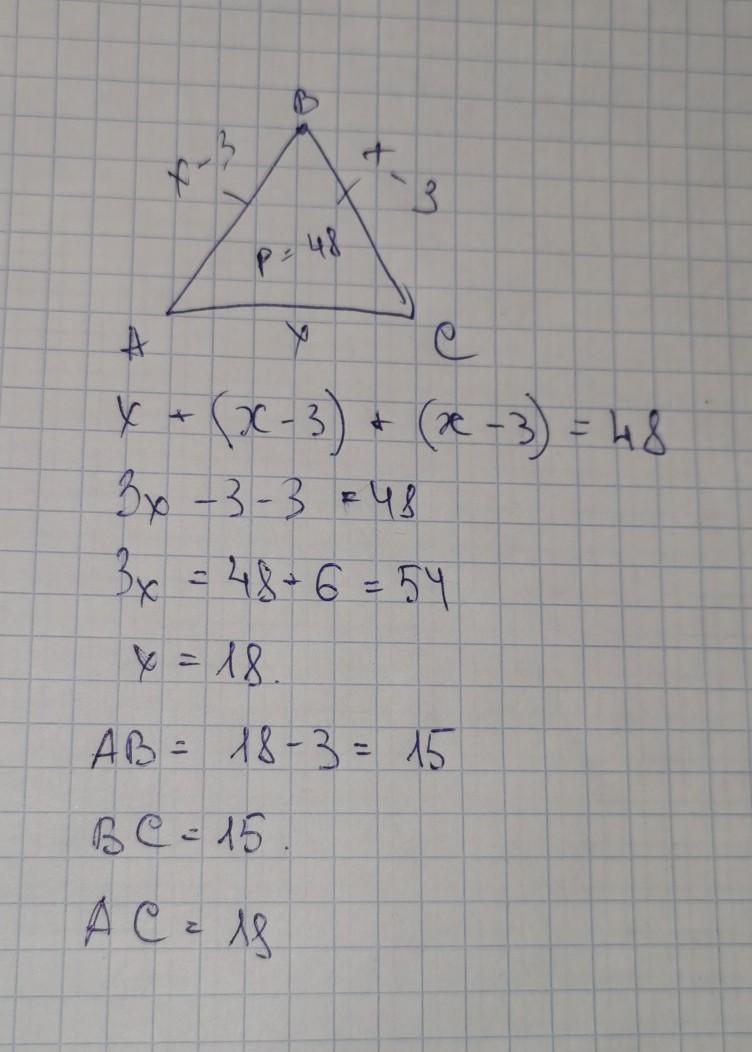 B
x - 3
x - 3
P = 48
A
x
C
x + (x - 3) + (x - 3) = 48
3x - 3 - 3 = 48
3x = 48 + 6 = 54
x = 18.
AB = 18 - 3 = 15
BC = 15.
AC = 18